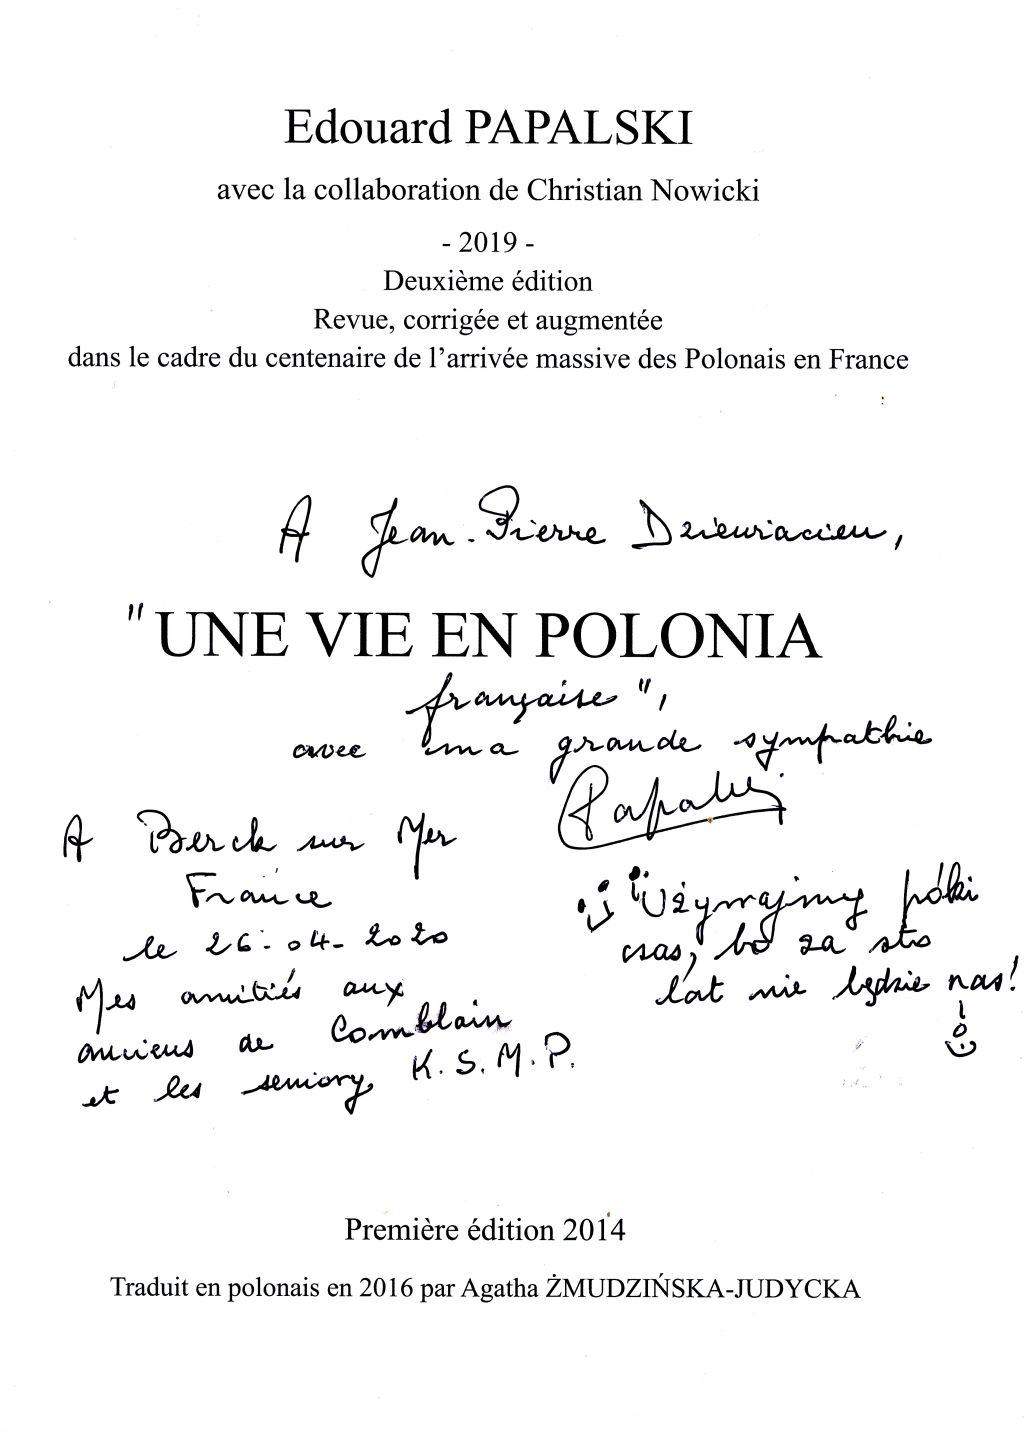 Edouard PAPALSKI
avec la collaboration de Christian Nowicki
- 2019 -
Deuxième édition
Revue, corrigée et augmentée
dans le cadre du centenaire de l’arrivée massive des Polonais en France
A Jean-Pierre Dzieuriacieu,
"UNE VIE EN POLONIA
française",
avec ma grande sympathie
Papalski
A Berck sur Mer
France
le 26-04-2020
Mes amitiés aux
anciens de Comblain
et les seniory K.S.M.P.
"Używajmy póki
czas, bo za sto
lat nie będzie nas!
Première édition 2014
Traduit en polonais en 2016 par Agatha ŻMUDZIŃSKA-JUDYCKA